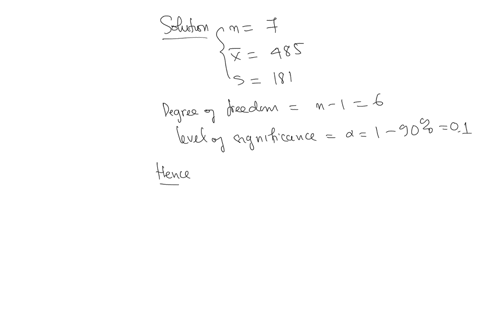 Solution n = 7
x̄ = 485
s = 181
Degree of freedom = n-1 = 6
level of significance = α = 1 - 90% = 0.1
Hence